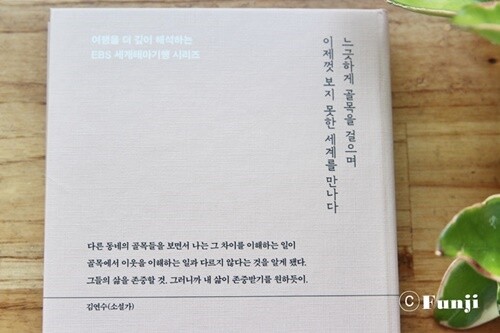 여행을 더 깊이 해석하는
EBS 세계테마기행 시리즈
느긋하게 골목을 걸으며
이제껏 보지 못한 세계를 만나다
다른 동네의 골목들을 보면서 나는 그 차이를 이해하는 일이
골목에서 이웃을 이해하는 일과 다르지 않다는 것을 알게 됐다.
그들의 삶을 존중할 것. 그러니까 내 삶이 존중받기를 원하듯이.
김연수(소설가)
©Funji